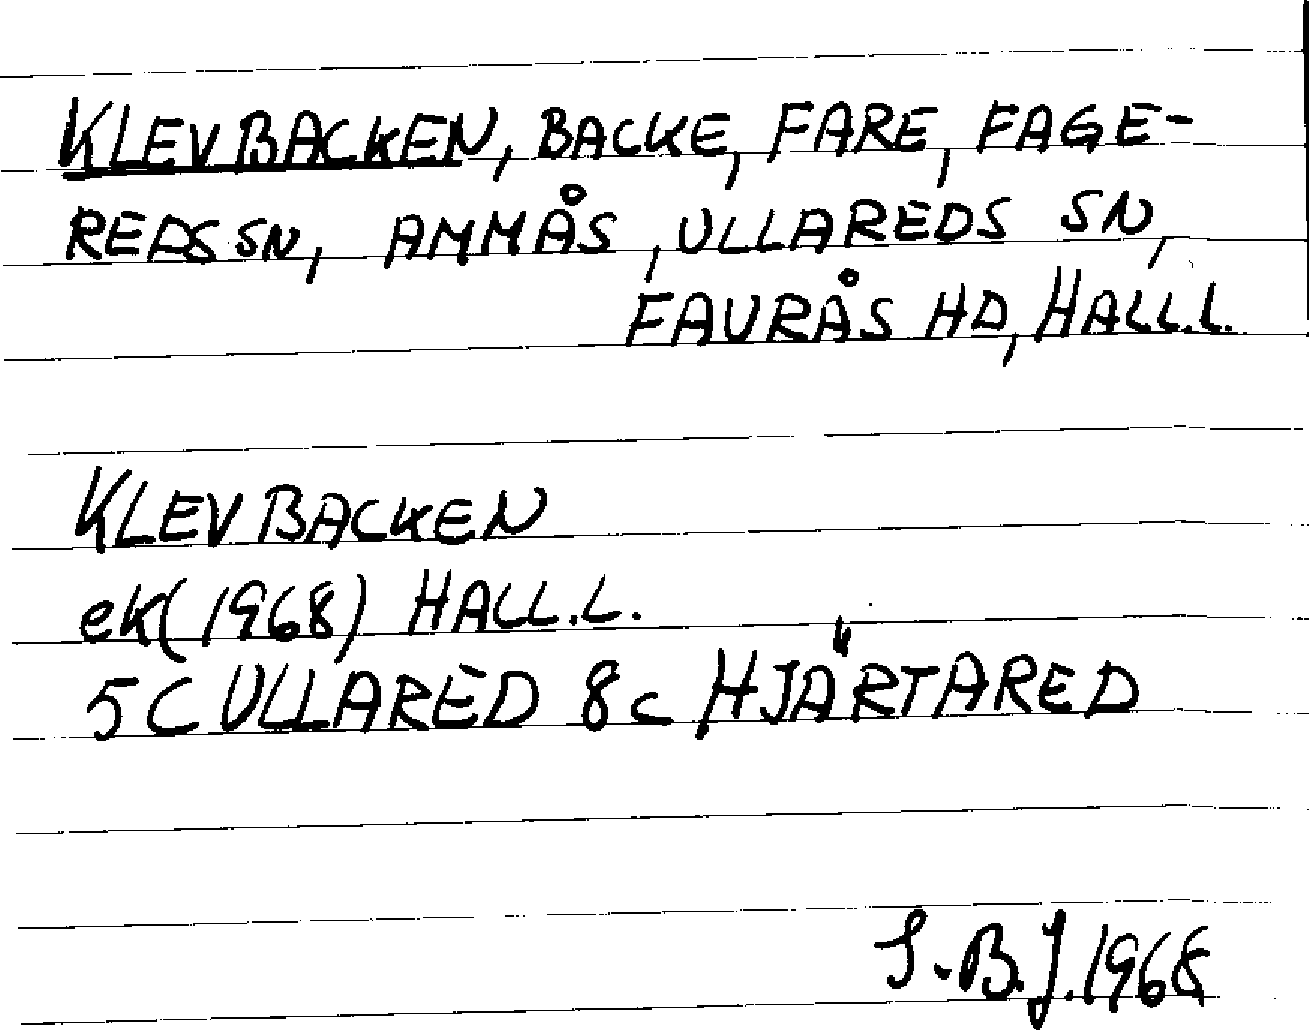 KLEVBACKEN, BACKE, FARE, FAGE-
REDS SN, AMMÅS, ULLAREDS SN,
FAURÅS HD, HALL.L.
KLEVBACKEN
eK(1968) HALL.L.
5C ULLARED 8c HJÄRTARED
S.B.J. 1968